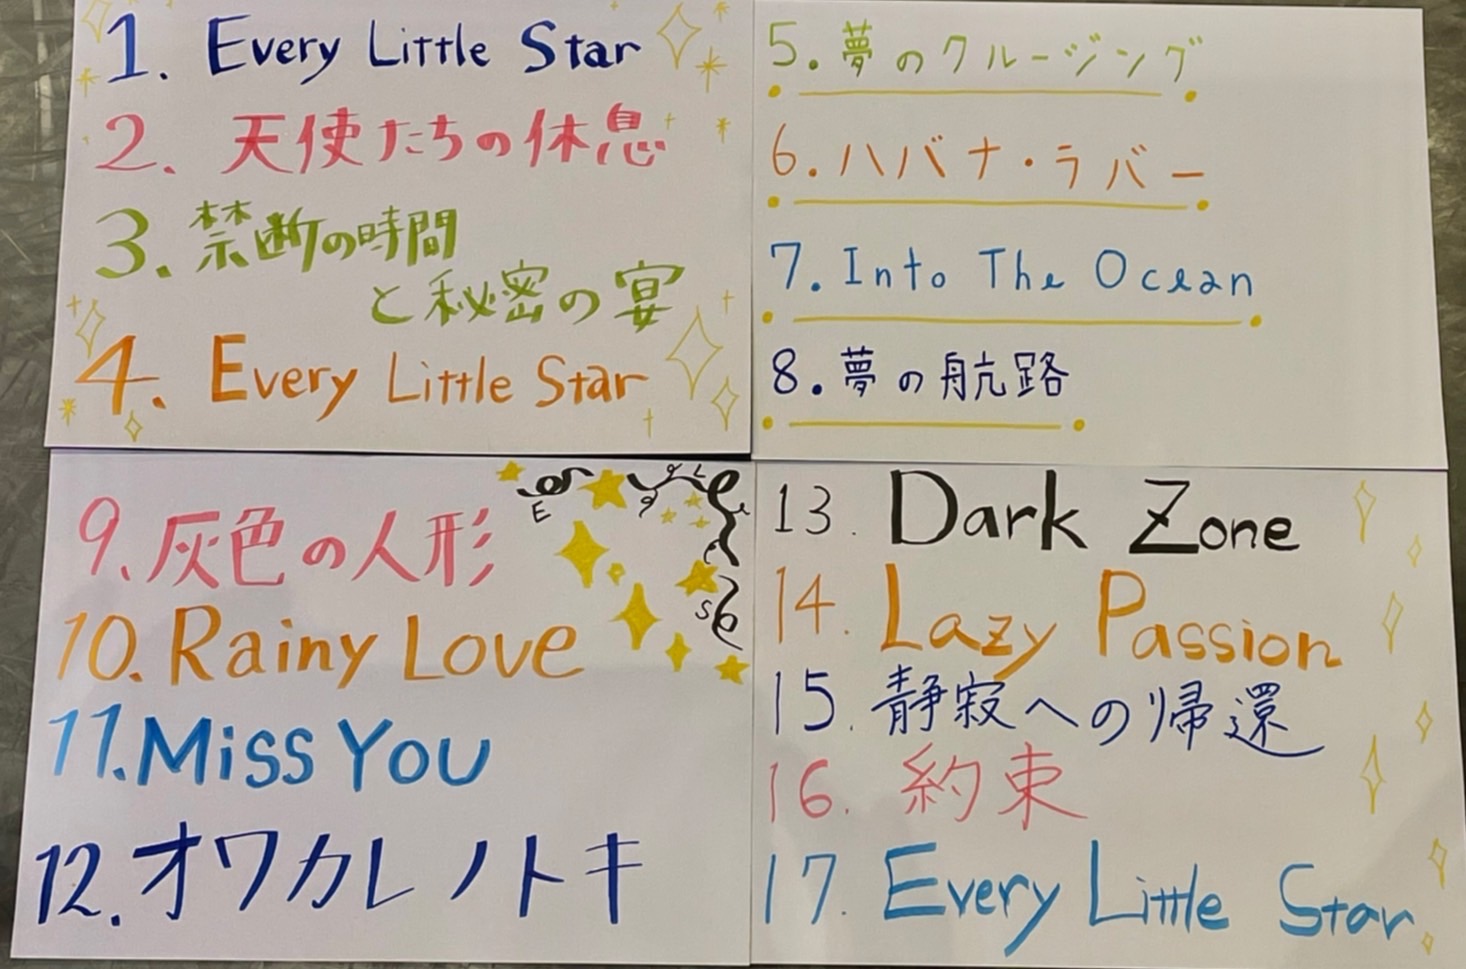 1. Every Little Star
2. 天使たちの休息
3. 禁断の時間
と秘密の宴
4. Every Little Star
5. 夢のクルージング
6. ハバナ・ラバー
7. Into The Ocean
8. 夢の航路
9. 灰色の人形
10. Rainy Love
11. Miss You
12. オワカレノトキ
13. Dark Zone
14. Lazy Passion
15. 静寂への帰還
16. 約束
17. Every Little Star